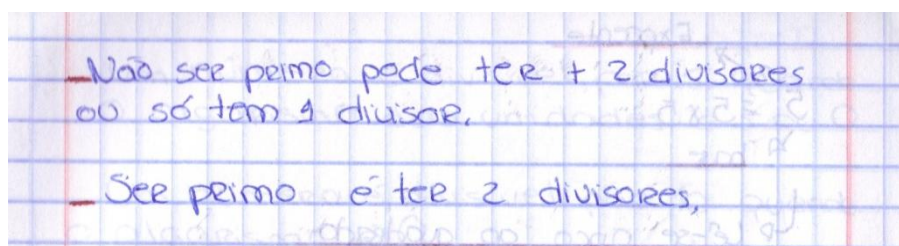 – Não ser primo pode ter + 2 divisores
ou só tem 1 divisor.
– Ser primo é ter 2 divisores,